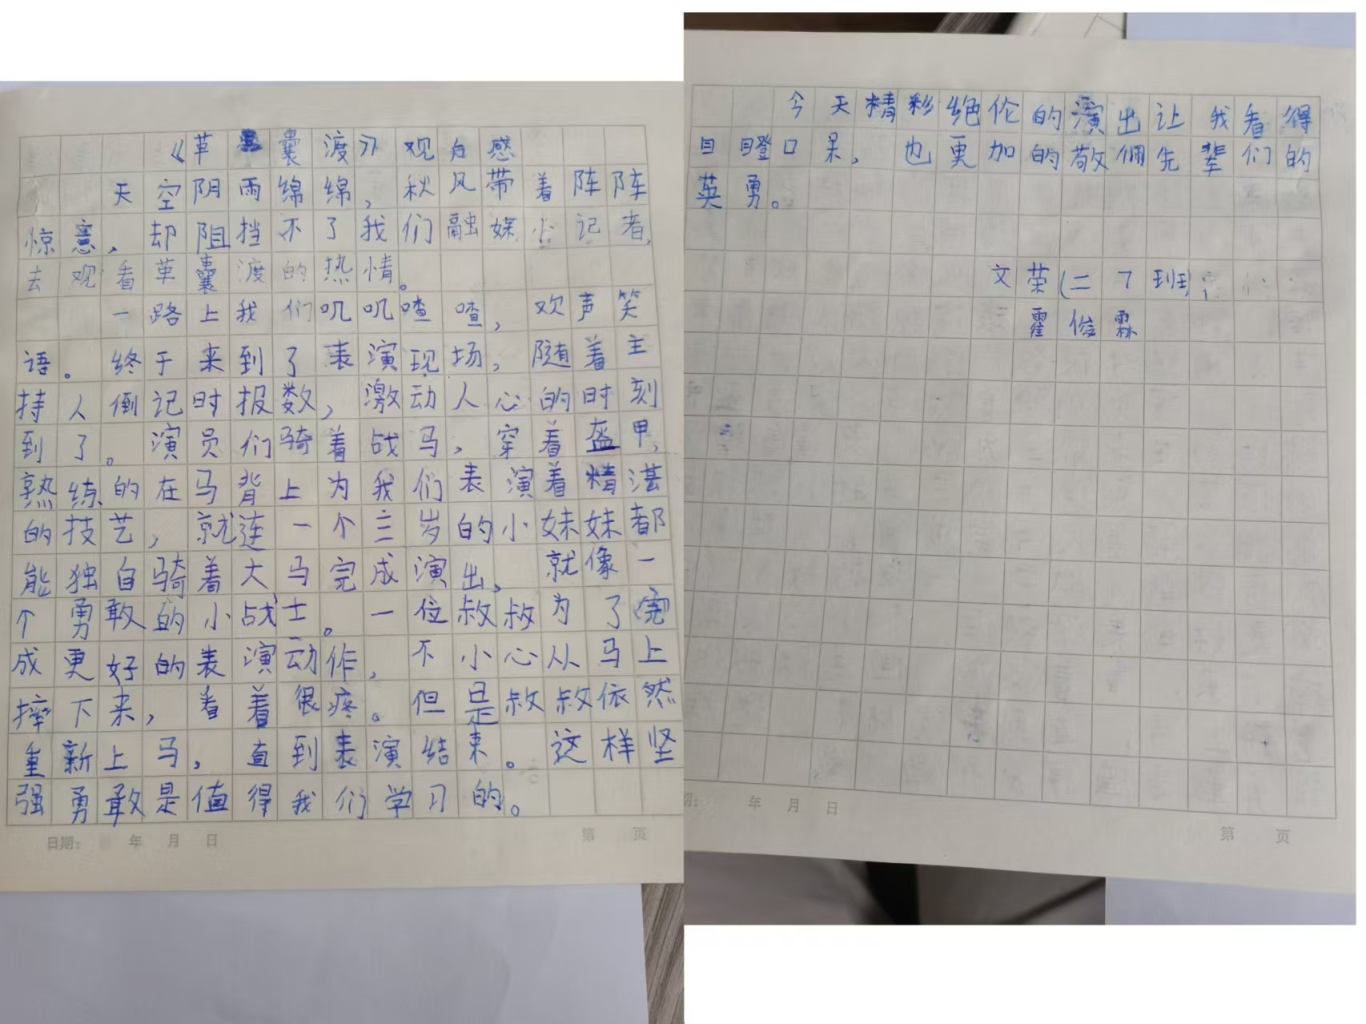 《革囊渡》观后感
天空阴雨绵绵，秋风带着阵阵
惊意，却阻挡不了我们融媒小记者，
去观看革囊渡的热情。
一路上我们叽叽喳喳，欢声笑
语。终于来到了表演现场，随着主
持人倒记时报数，激动人心的时刻
到了。演员们骑着战马，穿着盔甲，
熟练的在马背上为我们表演着精湛
的技艺，就连一个三岁的小妹妹都
能独自骑着大马完成演出，就像一
个勇敢的小战士。一位叔叔为了完
成更好的表演动作，不小心从马上
摔下来，看着很疼。但是叔叔依然
重新上马，直到表演结束。这样坚
强勇敢是值得我们学习的。
日期： 年 月 日 第 页
今天精彩绝伦的演出让我看得
目瞪口呆，也更加的敬佩先辈们的
英勇。
文荣(二7班)
霍俊霖
期： 年 月 日 第 页